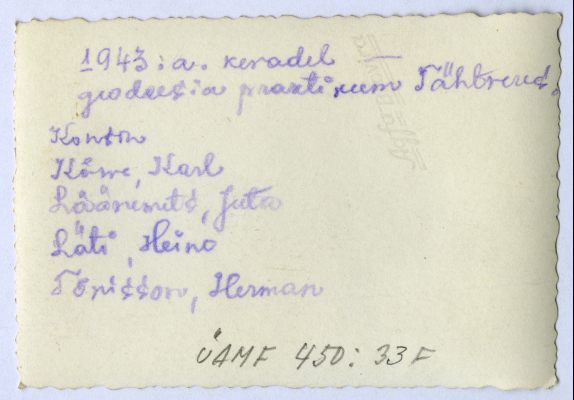 1943.a. kevadel
geodeesia praktikum Tähtveres.
Konsin
Kõwe, Karl
Läänemets, Juta
Läti, Heino
Tõnisson, Herman
ÜAMF 450:33 F